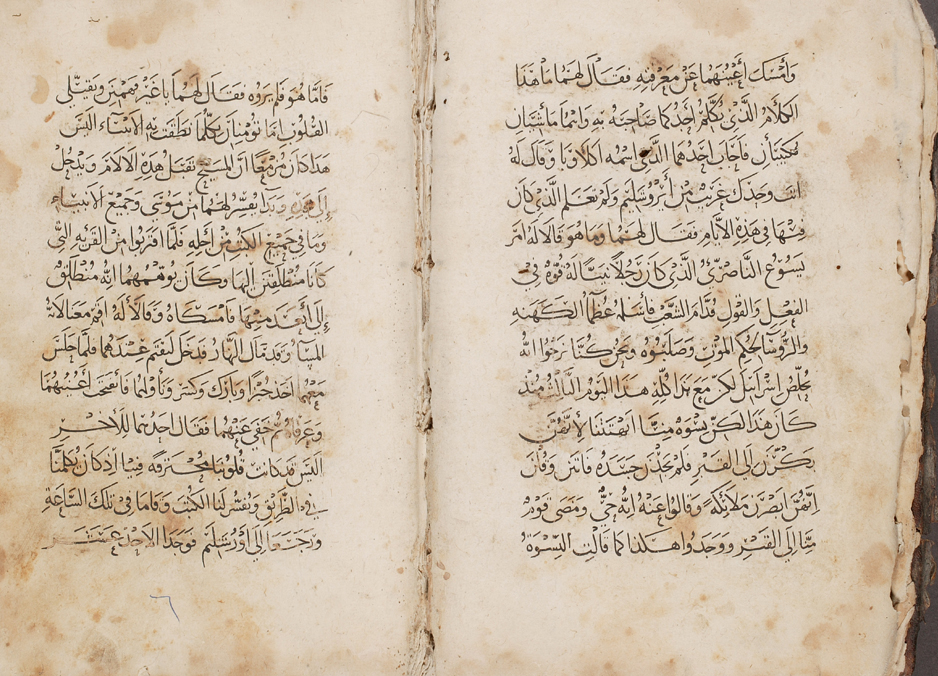 وامسك اعينهما عن معرفته فقال لهما ما هذا
الكلام الذي يكلم احدكما صاحبه به وانتما ماشيان
كئيبان فاجاب احدهما الذي اسمه اكلاوبا وقال له
انت وحدك غريب من أيروشليم ولم تعلم الذي كان
فيها في هذه الايام فقال لهما وما هو قالا له امر
يسوع الناصري الذي كان رجلا نبيا له قوه في
الفعل والقول قدام الشعب فأسلمه عظما الكهنه
والرؤسا لحكم الموت وصلبوه ونحن كنا نرجوا انه
يخلص اسرايل لكن مع هذا كله هذا اليوم الثالث منذ
كان هذا لكن نسوه منا ابهتننا لأنهن
بكرن الى القبر فلم يجدن جسده فاتين وقلن
انهن ابصرن ملائكه وقالوا عنه انه حي ومضى قوم
منا الى القبر ووجدوا هكذا كما قالت النسوة
فاما هو فلم يروه فقال لهما يا غير فهمين وثقيلي
القلوب اما تؤمنان بكلما نطقت به الانبياء اليس
هذا كان مزمعا ان المسيح يقبل هذه الالام ويدخل
إلى مجده وبدا يفسر لهما من موسى وجميع الأنبياء
وما في جميع الكتب من أجله فلما اقتربوا من القريه التي
كانا منطلقين اليها وكان يوهمهما انه منطلق
إلى أبعد منها فأمسكاه وقالا له اقم معنا لانه
المسآ وقد مال النهار فدخل ليقيم عندهما فلما جلس
معهما اخذ خبزا وبارك وكسر وناولهما فانفتحت اعينهما
وعرفاه ثم خفي عنهما فقال احدهما للاخر
اليس قد كانت قلوبنا محترقه فينا اذ كان يكلمنا
في الطريق ويفسر لنا الكتب وقاما في تلك الساعة
ورجعوا إلى أورشليم فوجدا الاحد عشر